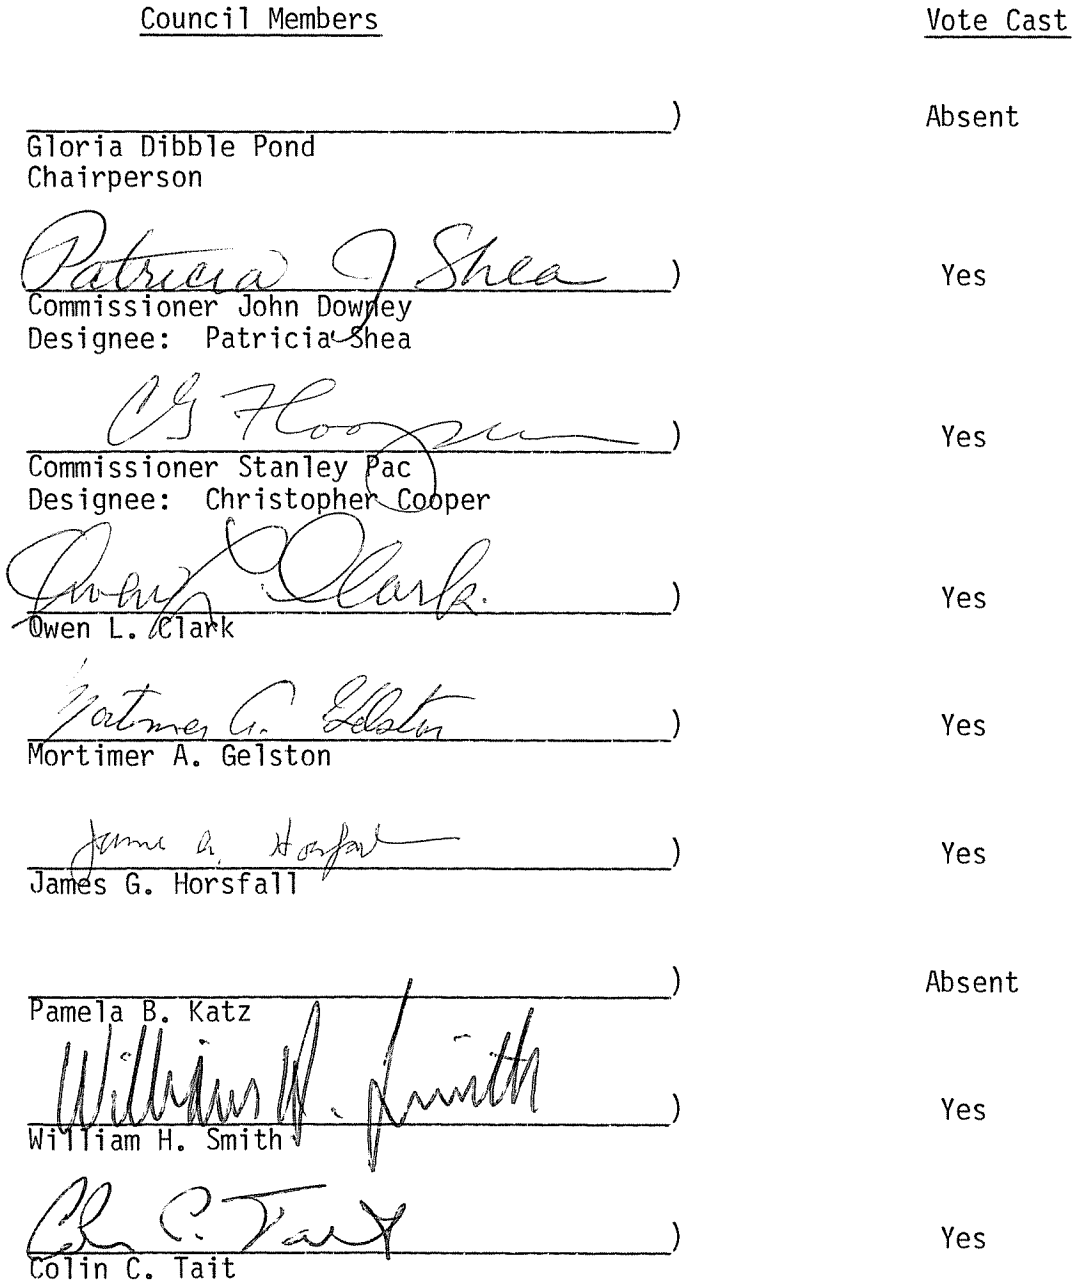 Council Members Vote Cast
) Absent
Gloria Dibble Pond
Chairperson
Patricia J Shea ) Yes
Commissioner John Downey
Designee: Patricia Shea
) Yes
Commissioner Stanley Pac
Designee: Christopher Cooper
Owen L. Clark ) Yes
Owen L. Clark
Mortimer A. Gelston ) Yes
Mortimer A. Gelston
James G. Horsfall ) Yes
James G. Horsfall
) Absent
Pamela B. Katz
William H. Smith ) Yes
William H. Smith
Colin C. Tait ) Yes
Colin C. Tait